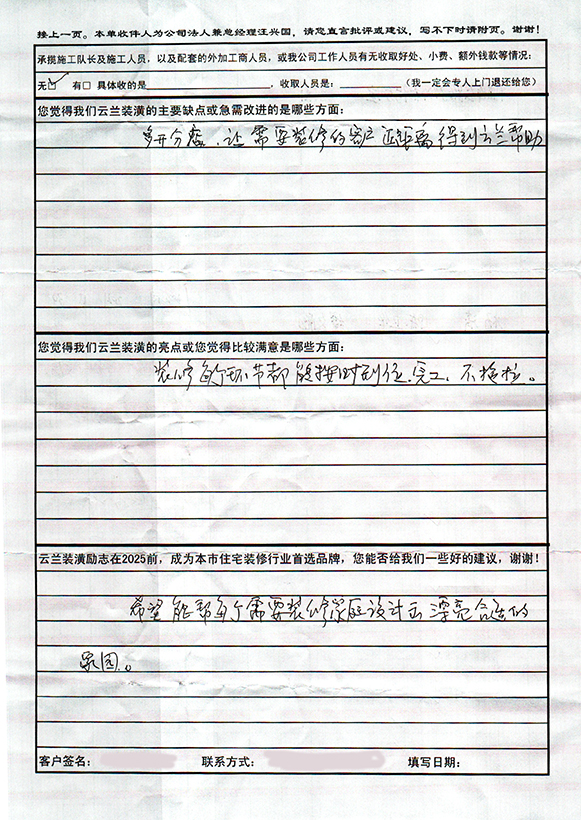 接上一页。本单收件人为公司法人兼总经理汪兴国，请您直言批评或建议，写不下时请附页。谢谢！
承揽施工队长及施工人员，以及配套的外加工商人员，或我公司工作人员有无收取好处、小费、额外钱款等情况：
无☑ 有□ 具体收的是________________，收取人员是：____________（我一定会专人上门退还给您）
您觉得我们云兰装潢的主要缺点或急需改进的是哪些方面：
多开分店，让需要装修的客户近距离得到云兰帮助
您觉得我们云兰装潢的亮点或您觉得比较满意是哪些方面：
装修每个环节都能按时到位完工，不拖拉。
云兰装潢励志在2025前，成为本市住宅装修行业首选品牌，您能否给我们一些好的建议，谢谢！
希望能帮每个需要装修家庭设计出漂亮合适的
家园。
客户签名： 联系方式： 填写日期：